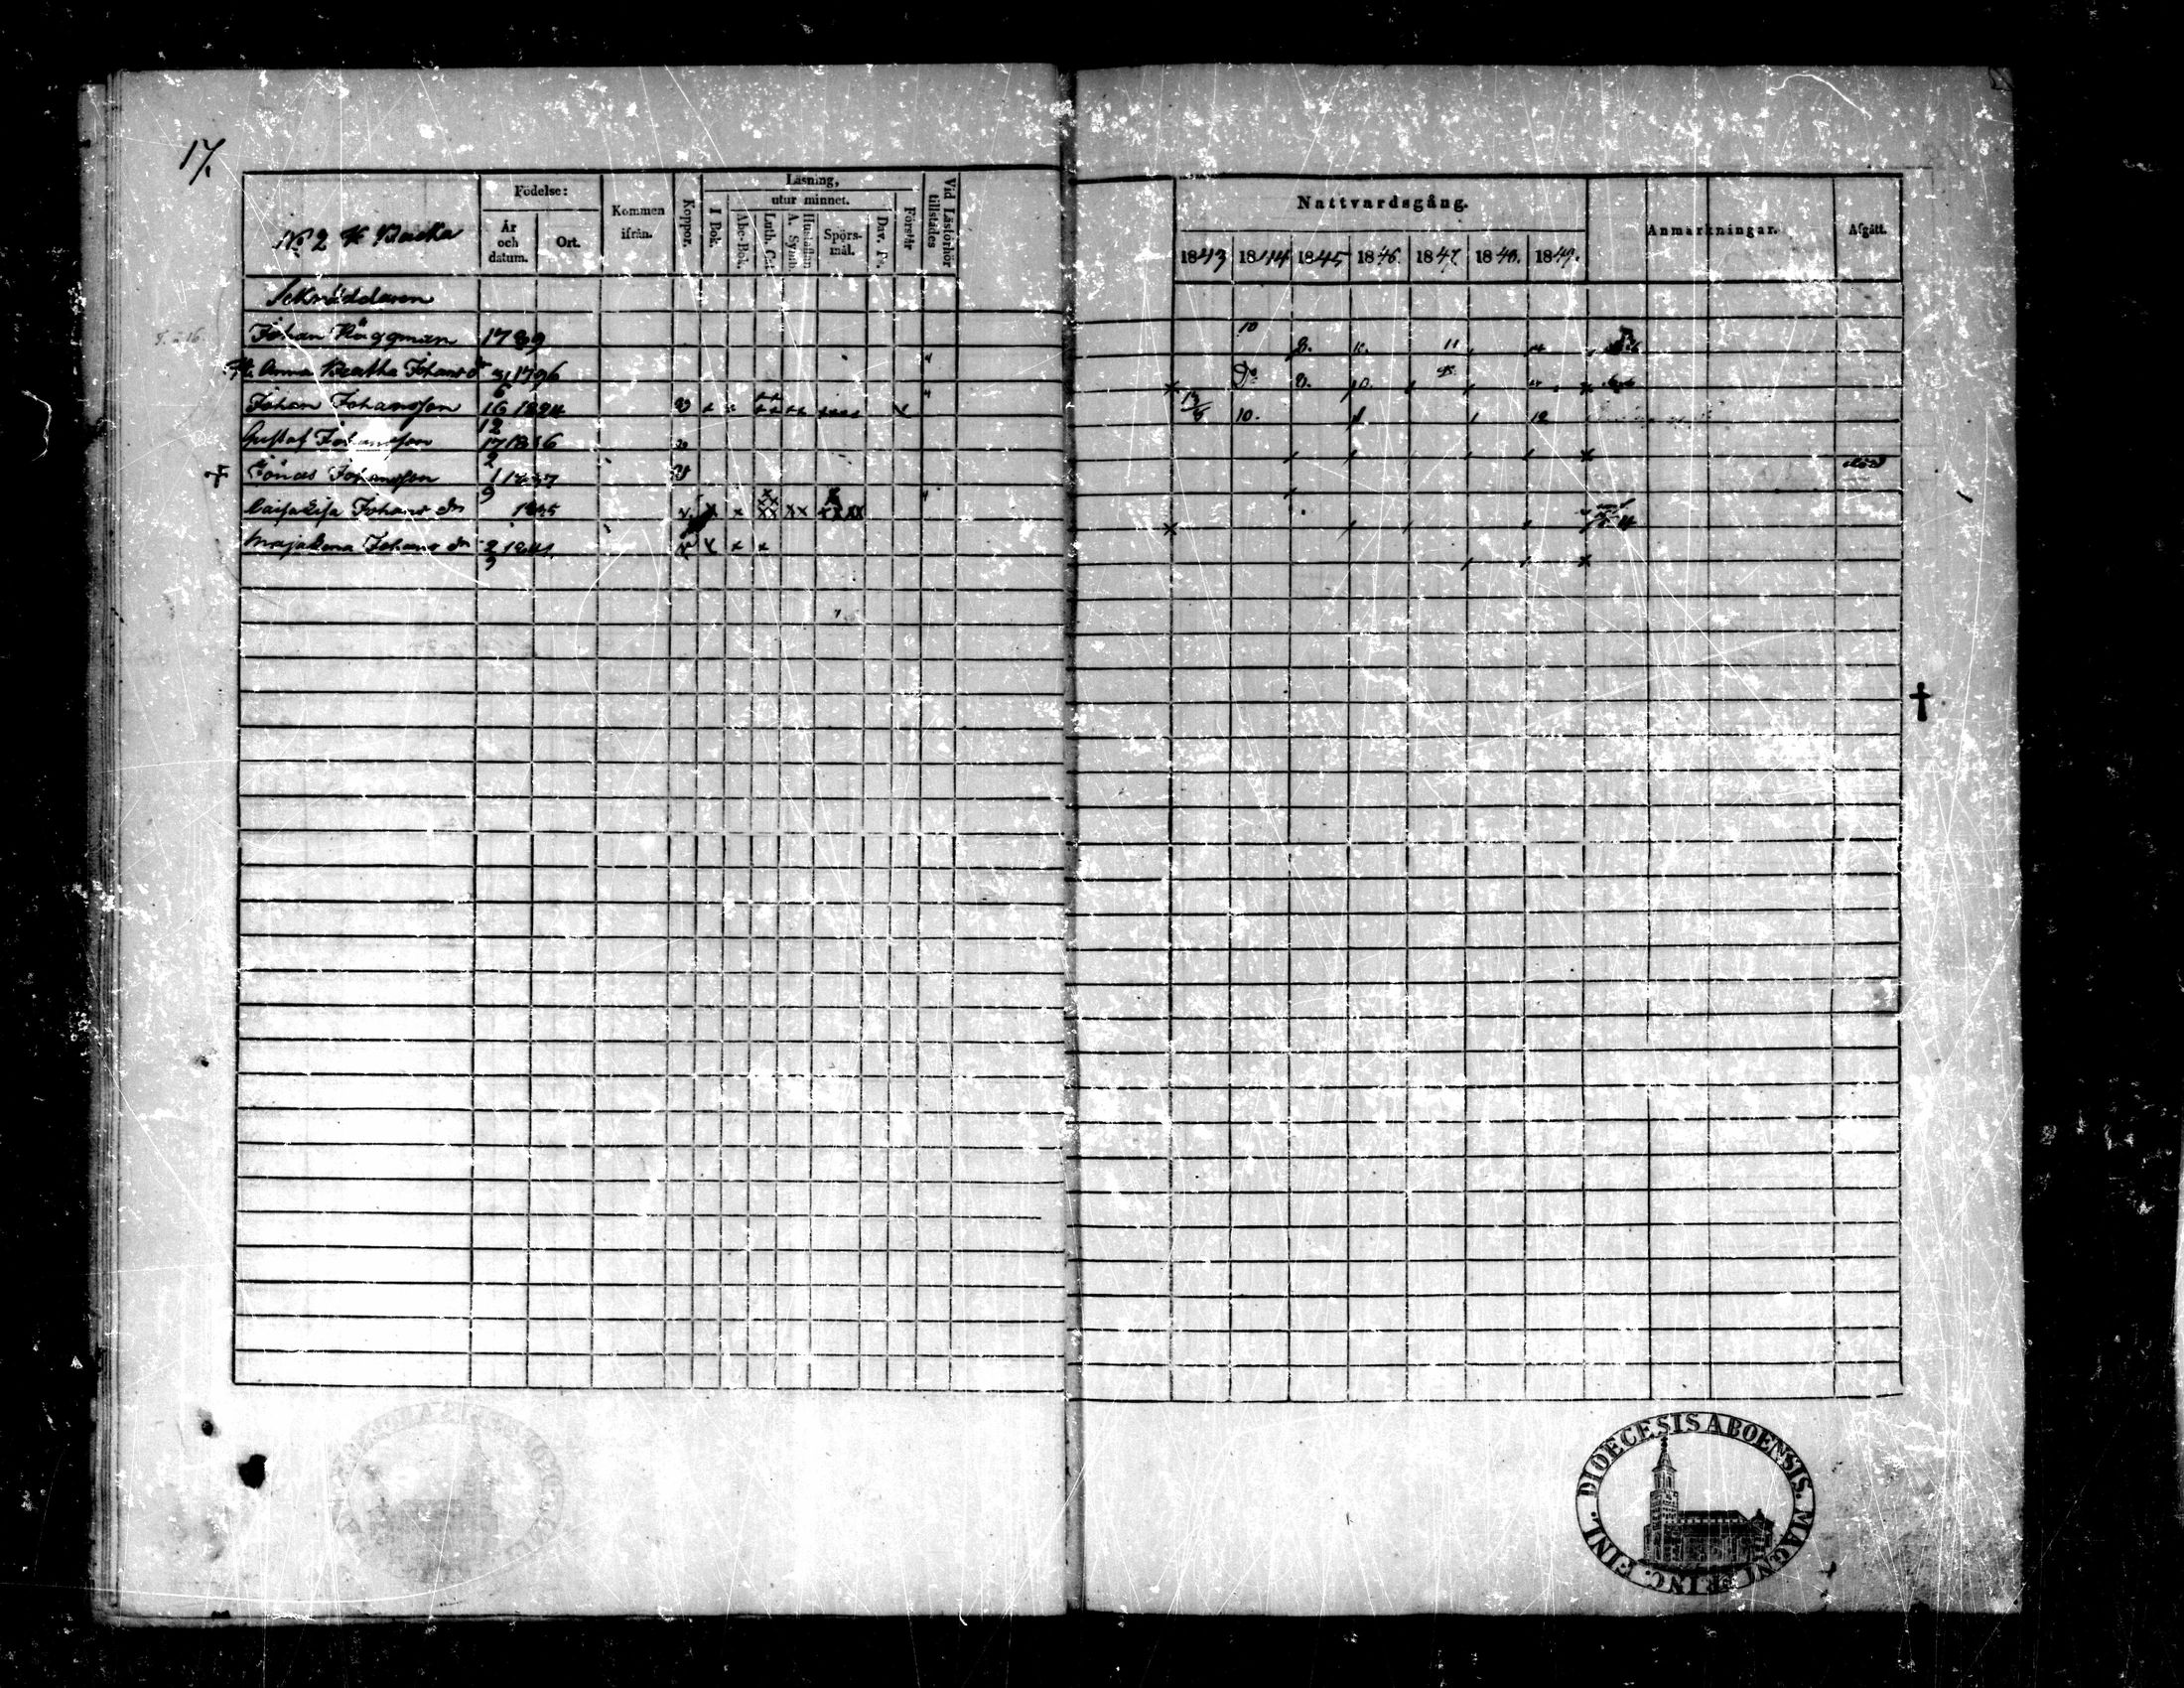 17.
Nº 2 Backa
Födelse:
År och datum.
Ort.
Kommen ifrån.
Koppor.
Läsning,
utur minnet.
I Bok.
Abc-Bok.
Luth. Cat.
A. Symb.
Hustaflan
Spörsmål.
Dav. Ps.
Förstår
Vid Läsförhör tillstädes
Nattvardsgång.
1843 1844 1845 1846. 1847. 1848. 1849.
Anmärkningar.
Afgått.
Skräddaren
Johan Häggman 1789 10 8. 11 14
Anna Beatha Johansdr 1796 Do 8. 10.
Johan Johansson 16/12 1824 10. 12
Gustaf Johansson 17/2 1836
Jonas Johansson 1/9 död
Caisa Lisa Johans dr
Maja Lena Johans dr 2/9 1841
DIOECESIS ABOENSIS. MAGNI PRINC. FINL.